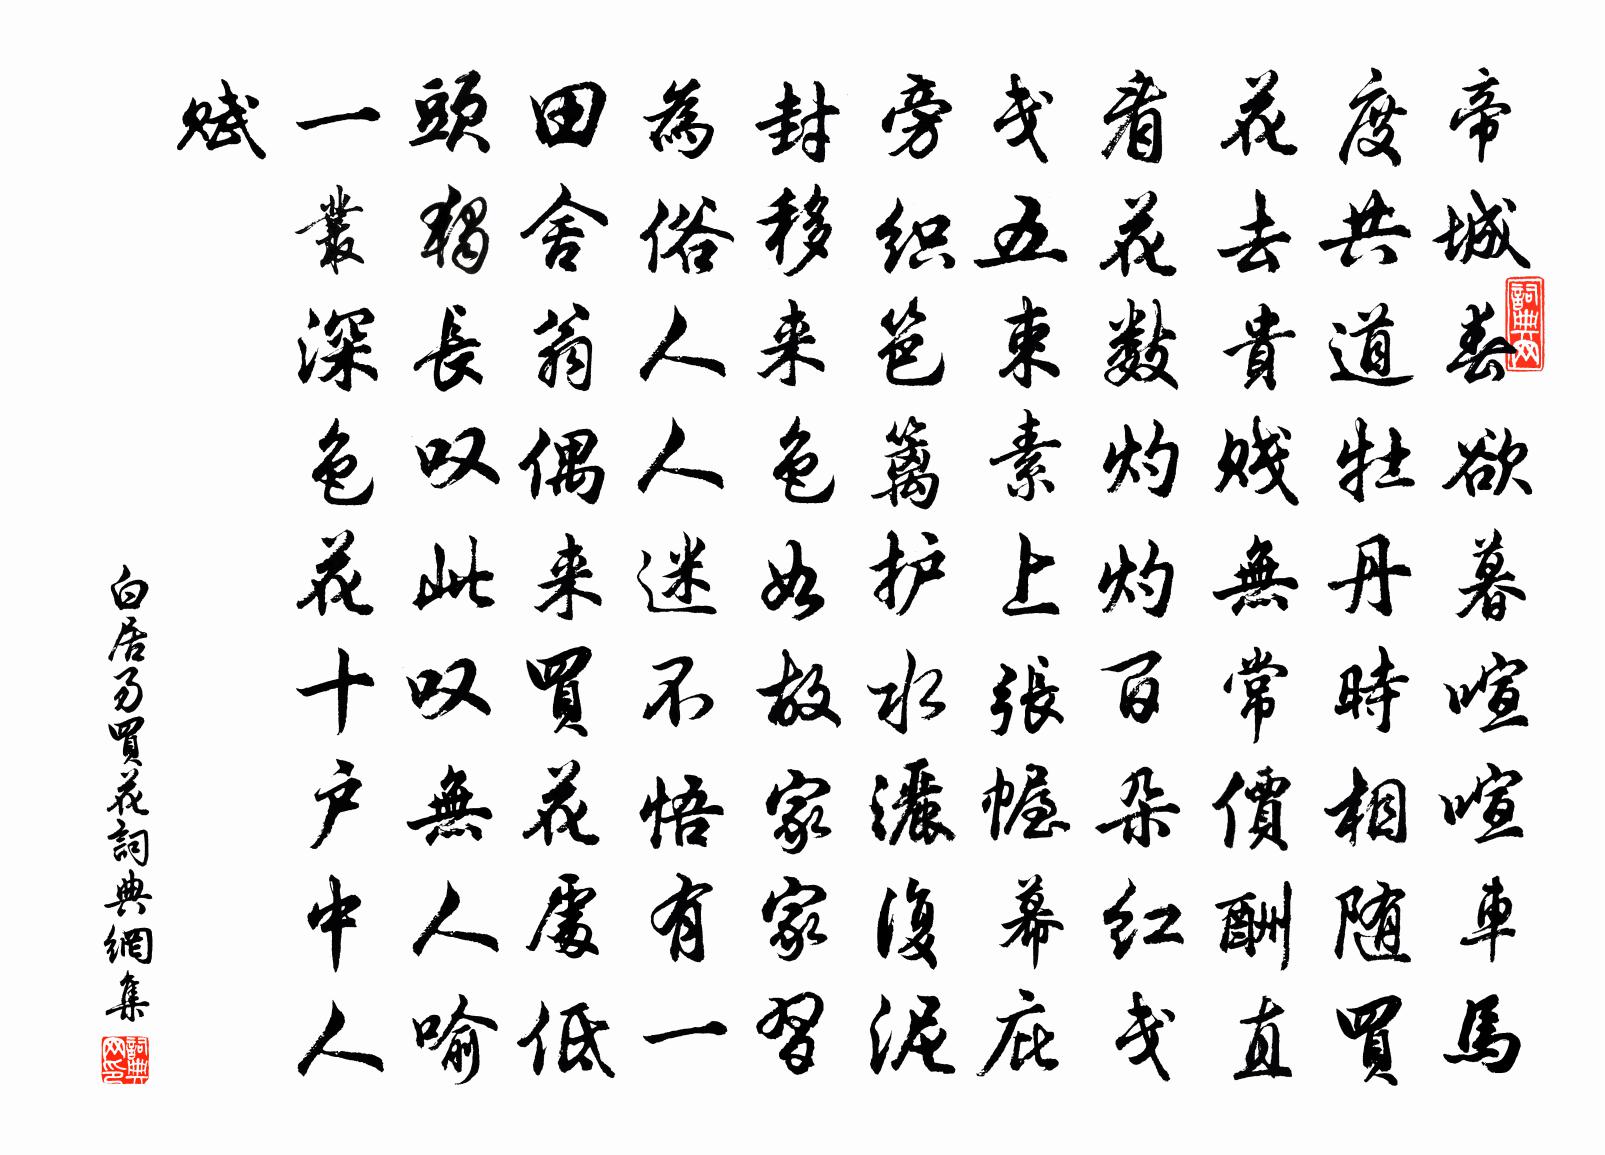 帝城春欲暮喧喧車馬
度共道牡丹時相随買
花去貴贱無常價酬直
看花數灼灼百朵红戋
戋五束素上張幄幕庇
旁织笆篱护水灑復泥
封移来色如故家家習
為俗人人迷不悟有一
田舍翁偶来買花處低
頭獨長叹此叹無人喻
一叢深色花十户中人
赋
白居易買花詞典網集
詞典网
詞典网印